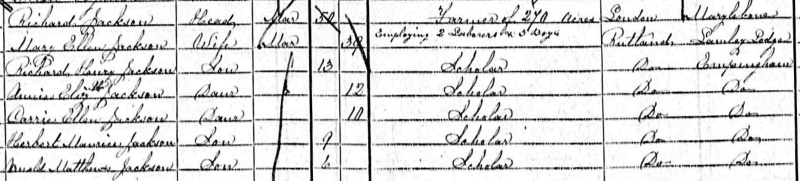 Richard Jackson Head Mar 50 Farmer of 270 Acres London Marylebone
Mary Ellen Jackson Wife Mar 39 Employing 2 Laborers & 3 Boys Rutland Lodge
Richard Henry Jackson Son 13 Scholar Do Empingham
Annie Elizth Jackson Daur 12 Scholar Do Do
Carrie Ellen Jackson Daur 10 Scholar Do Do
Herbert Maurice Jackson Son 9 Scholar Do Do
Arnold Matthew Jackson Son 6 Scholar Do Do